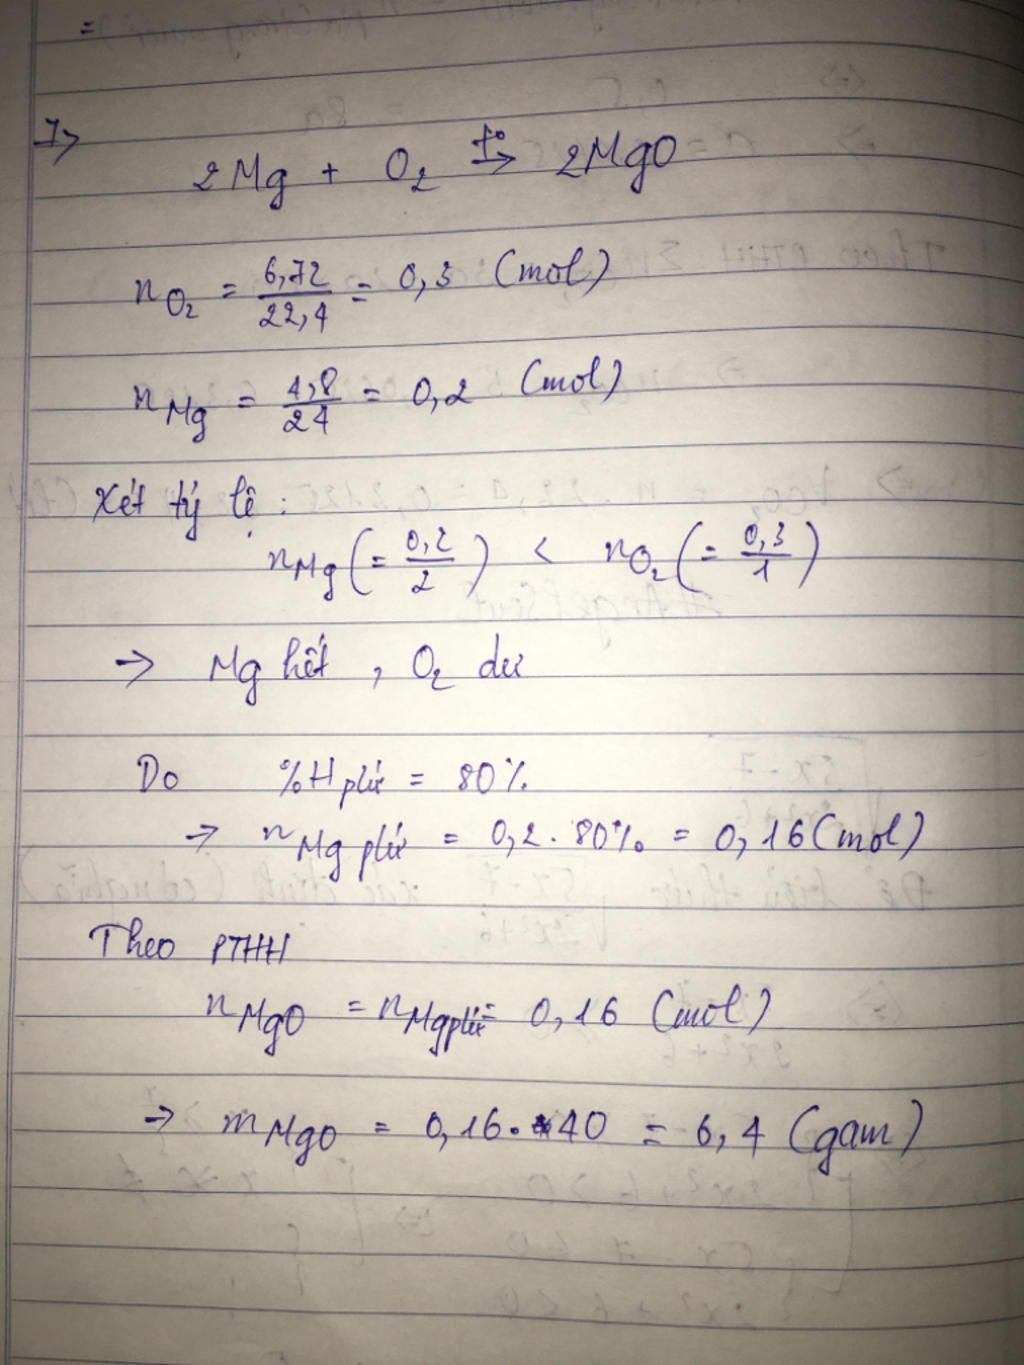 =
7>
2Mg + O₂ t°→ 2MgO
nO₂ = 6,72/22,4 = 0,3 (mol)
nMg = 4,8/24 = 0,2 (mol)
Xét tỷ lệ :
nMg (= 0,2/2) < nO₂ (= 0,3/1)
→ Mg hết , O₂ dư
Do %H pứ = 80%
→ nMg pứ = 0,2 . 80% = 0,16 (mol)
Theo PTHH
nMgO = nMg pứ = 0,16 (mol)
→ mMgO = 0,16 . 40 = 6,4 (gam)